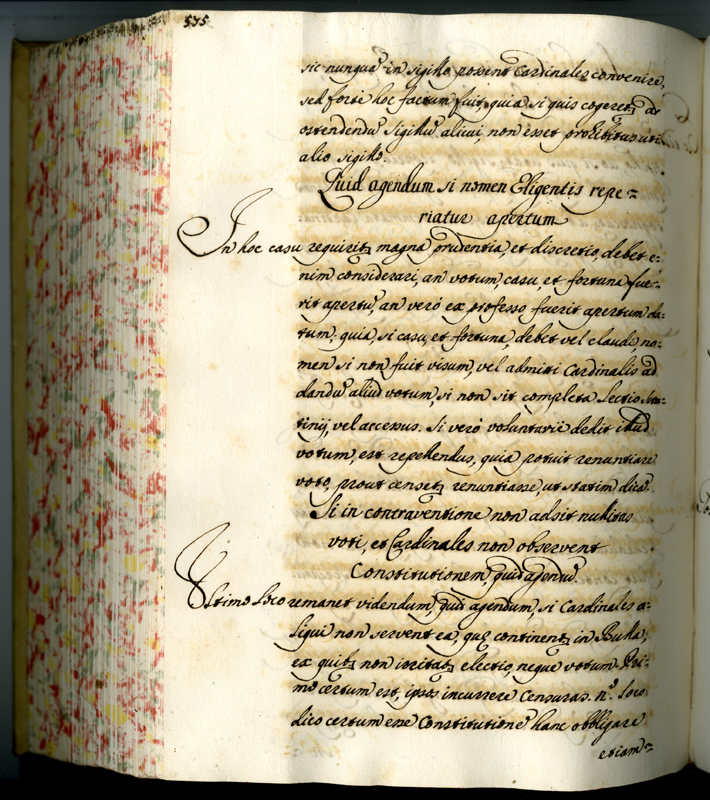 535
sic nunquā in sigillo possent Cardinales convenire,
sed forte hoc factum fuit, quia si quis cogeretꝫ ad
ostendendū sigillū alicui, non esset prohibitus uti
alio sigillo.
Quid agendum si nomen Eligentis repe=
riatur apertum
In hoc casu requiritꝫ magna prudentia, et discretio, debet e=
nim considerari, an votum, casu, et fortuna fue=
rit apertū, an verò ex professo fuerit apertum da=
tum, quia, si casu, et fortuna, debet vel claudi, no=
men si non fuit visum, vel admitti Cardinalis ad
dandū aliud votum, si non sit completa lectio scru=
tinij, vel accessus. Si verò voluntariè dedit illud
votum, est repellendus, quia potuit renuntiare
voto, prout censetꝫ renuntiasse, ut statim dicā.
Si in contraventione non adsit nullitas
voti, et Cardinales non observent
Constitutionem, quid agendū.
Ultimo loco remanet videndum, quid agendum, si Cardinales a=
liqui non servent ea, quę continentꝫ in Bulla,
ex quibꝫ non irritatꝫ electio, neque votum. Pri=
mo certum est, ipsos incurrere censuras. nº. loco
dico certum esse Constitutionē hanc obbligare
etiam=